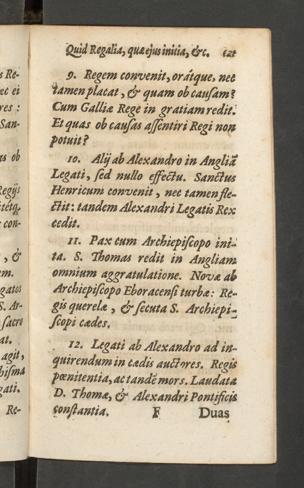 Quid Regalia, quæ ejus initia, &c. 121
9. Regem convenit, orátque, nec
tamen placat, & quam ob causam?
Cum Galliæ Rege in gratiam redit.
Et quas ob causas assentiri Regi non
potuit?
10. Alij ab Alexandro in Angliã
Legati, sed nullo effectu. Sanctus
Henricum convenit, nec tamen fle-
ctit: tandem Alexandri Legatis Rex
cedit.
11. Pax cum Archiepiscopo ini-
ta. S. Thomas redit in Angliam
omnium aggratulatione. Novæ ab
Archiepiscopo Eboracensi turbæ: Re-
gis querelæ, & secuta S. Archiepi-
scopi cædes.
12. Legati ab Alexandro ad in-
quirendum in cædis auctores. Regis
pœnitentia, ac tandē mors. Laudata
D. Thomæ, & Alexandri Pontificis
constantia. F Duas